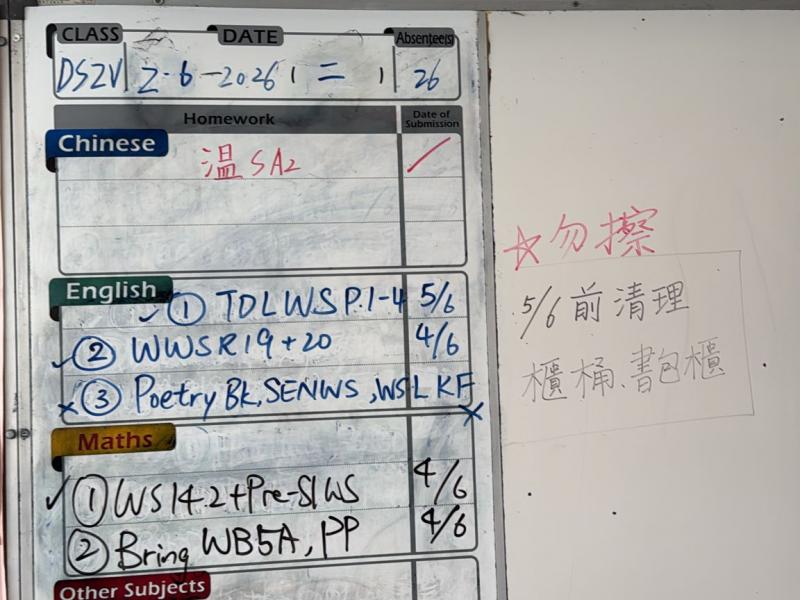 CLASS DATE Absentee(s)
DSZV 2-6-2026 ( 二 ) 26
Homework Date of Submission
Chinese
温 SA2 /
English
✓ ① TDLWS P.1-4 5/6
✓ ② WWS R19+20 4/6
× ③ Poetry BK, SENWS, WSLKF ×
Maths
✓ ① WS14.2+Pre-S1WS 4/6
② Bring WB5A, PP 4/6
Other Subjects
☆勿擦
5/6 前清理
櫃桶、書包櫃